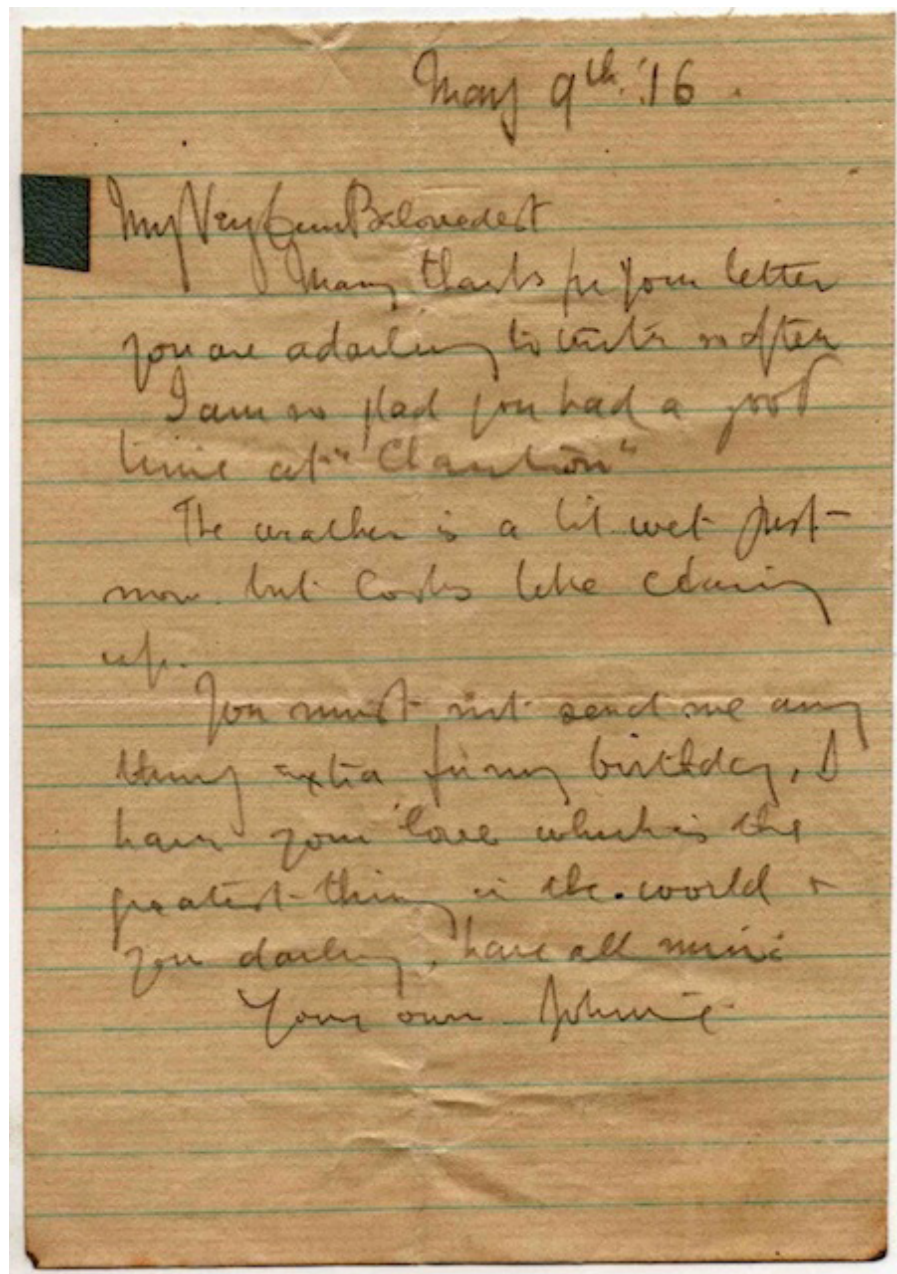 May 9th '16.
My Very Own Belovedest
Many thanks for your letter
you are a darling to write so often
I am so glad you had a good
time at "
The weather is a bit wet just
now but looks like clearing
up.
You must not send me any
thing extra for my birthday, I
have your love which is the
greatest thing in the world +
you darling, have all mine
Your own Johnnie